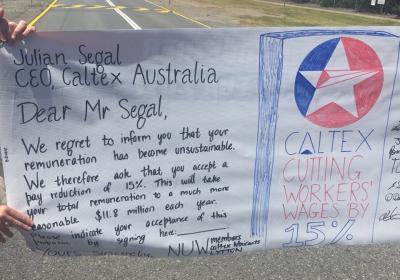 Julian Segal
CEO, Caltex Australia
Dear Mr Segal,
We regret to inform you that your
remuneration has become unsustainable.
We therefore ask that you accept a
pay reduction of 15%. This will take
your total remuneration to a much more
reasonable $11.8 million each year.
Please indicate your acceptance of this
by signing here:
Yours sincerely,
NUW members
Caltex
LYTTON
CALTEX
CUTTING
WORKERS'
WAGES BY
15%